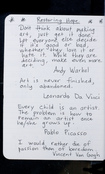 Restoring Hope
Dont think about making
art, just get it done.
Let everyone else decide
if it's good or bad,
whether they love it or
hate it. While they are
deciding, make even more
art.
Andy Warhol
Art is never finished,
only abandoned.
Leonardo Da Vinci
Every child is an artist.
The problem is how to
remain an artist once
he/she grows up.
Pablo Picasso
I would rather die of
passion than of boredom.
Vincent Van Gogh